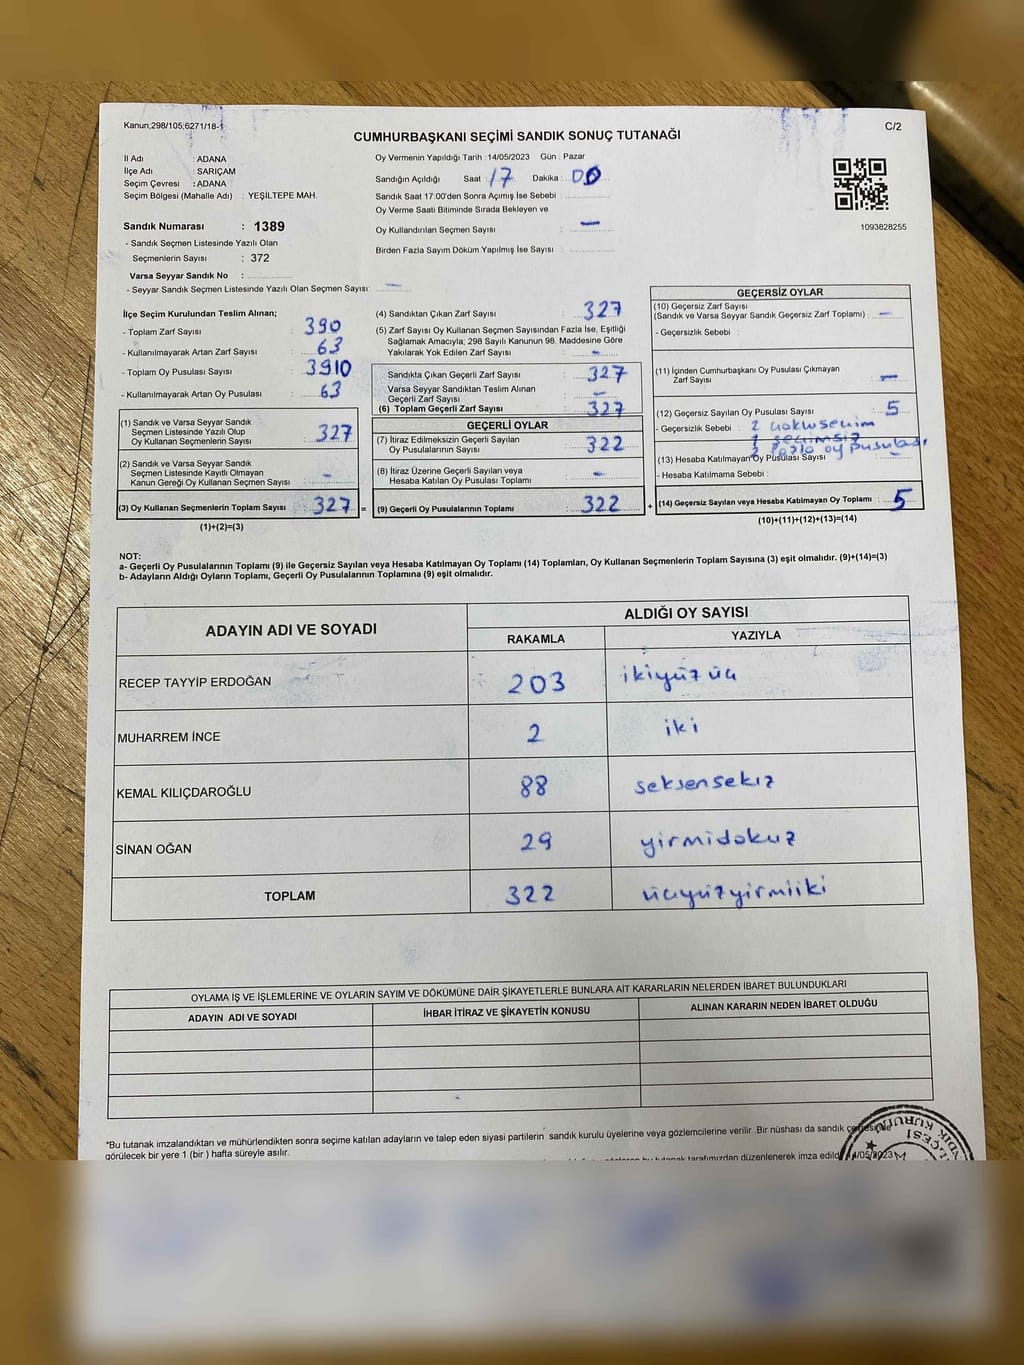 Kanun;298/105;6271/18-1
C/2
CUMHURBAŞKANI SEÇİMİ SANDIK SONUÇ TUTANAĞI
İl Adı : ADANA
İlçe Adı : SARIÇAM
Seçim Çevresi : ADANA
Seçim Bölgesi (Mahalle Adı) : YEŞİLTEPE MAH.
Sandık Numarası : 1389
- Sandık Seçmen Listesinde Yazılı Olan
Seçmenlerin Sayısı : 372
Varsa Seyyar Sandık No :
- Seyyar Sandık Seçmen Listesinde Yazılı Olan Seçmen Sayısı: —
Oy Vermenin Yapıldığı Tarih : 14/05/2023 Gün : Pazar
Sandığın Açıldığı Saat : 17 Dakika : 00
Sandık Saat 17:00'den Sonra Açımış İse Sebebi :
Oy Verme Saati Bitiminde Sırada Bekleyen ve
Oy Kullandırılan Seçmen Sayısı : —
Birden Fazla Sayım Döküm Yapılmış İse Sayısı :
1093828255
İlçe Seçim Kurulundan Teslim Alınan;
- Toplam Zarf Sayısı : 390
- Kullanılmayarak Artan Zarf Sayısı : 63
- Toplam Oy Pusulası Sayısı : 3910
- Kullanılmayarak Artan Oy Pusulası : 63
(1) Sandık ve Varsa Seyyar Sandık
Seçmen Listesinde Yazılı Olup
Oy Kullanan Seçmenlerin Sayısı : 327
(2) Sandık ve Varsa Seyyar Sandık
Seçmen Listesinde Kayıtlı Olmayan
Kanun Gereği Oy Kullanan Seçmen Sayısı : -
(3) Oy Kullanan Seçmenlerin Toplam Sayısı : 327
(1)+(2)=(3)
(4) Sandıktan Çıkan Zarf Sayısı : 327
(5) Zarf Sayısı Oy Kullanan Seçmen Sayısından Fazla İse, Eşitliği
Sağlamak Amacıyla, 298 Sayılı Kanunun 98. Maddesine Göre
Yakılarak Yok Edilen Zarf Sayısı : -
Sandıkta Çıkan Geçerli Zarf Sayısı : 327
Varsa Seyyar Sandıktan Teslim Alınan
Geçerli Zarf Sayısı : —
(6) Toplam Geçerli Zarf Sayısı : 327
GEÇERLİ OYLAR
(7) İtiraz Edilmeksizin Geçerli Sayılan
Oy Pusulalarının Sayısı : 322
(8) İtiraz Üzerine Geçerli Sayılan veya
Hesaba Katılan Oy Pusulası Toplamı : -
= (9) Geçerli Oy Pusulalarının Toplamı : 322
GEÇERSİZ OYLAR
(10) Geçersiz Zarf Sayısı
(Sandık ve Varsa Seyyar Sandık Geçersiz Zarf Toplamı) : —
- Geçersizlik Sebebi :
(11) İçinden Cumhurbaşkanı Oy Pusulası Çıkmayan
Zarf Sayısı : —
(12) Geçersiz Sayılan Oy Pusulası Sayısı : 5
- Geçersizlik Sebebi : 2 seçim
1 seçimsiz
2 fazla oy pusulası
(13) Hesaba Katılmayan Oy Pusulası Sayısı : -
- Hesaba Katılmama Sebebi :
+ (14) Geçersiz Sayılan veya Hesaba Katılmayan Oy Toplamı : 5
(10)+(11)+(12)+(13)=(14)
NOT:
a- Geçerli Oy Pusulalarının Toplamı (9) ile Geçersiz Sayılan veya Hesaba Katılmayan Oy Toplamı (14) Toplamları, Oy Kullanan Seçmenlerin Toplam Sayısına (3) eşit olmalıdır. (9)+(14)=(3)
b- Adayların Aldığı Oyların Toplamı, Geçerli Oy Pusulalarının Toplamına (9) eşit olmalıdır.
ADAYIN ADI VE SOYADI
ALDIĞI OY SAYISI
RAKAMLA YAZIYLA
RECEP TAYYİP ERDOĞAN 203 ikiyüz üç
MUHARREM İNCE 2 iki
KEMAL KILIÇDAROĞLU 88 seksensekiz
SİNAN OĞAN 29 yirmidokuz
TOPLAM 322 üçyüzyirmiiki
OYLAMA İŞ VE İŞLEMLERİNE VE OYLARIN SAYIM VE DÖKÜMÜNE DAİR ŞİKAYETLERLE BUNLARA AİT KARARLARIN NELERDEN İBARET BULUNDUKLARI
ADAYIN ADI VE SOYADI İHBAR İTİRAZ VE ŞİKAYETİN KONUSU ALINAN KARARIN NEDEN İBARET OLDUĞU
*Bu tutanak imzalandıktan ve mühürlendikten sonra seçime katılan adayların ve talep eden siyasi partilerin sandık kurulu üyelerine veya gözlemcilerine verilir. Bir nüshası da sandık çevresinde
görülecek bir yere 1 (bir ) hafta süreyle asılır.
bu tutanak tarafımızdan düzenlenerek imza edildi.